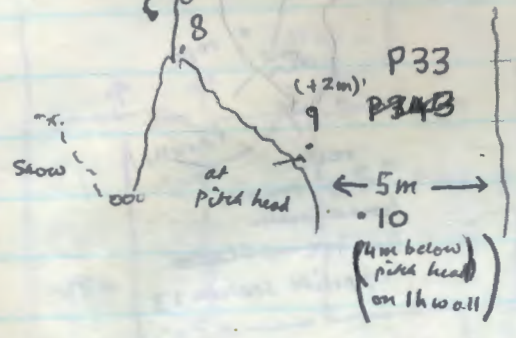 8
P33
(+2m)
9
Snow
at
pitch head
← 5m →
• 10
(4m below
pitch head
on lh wall)